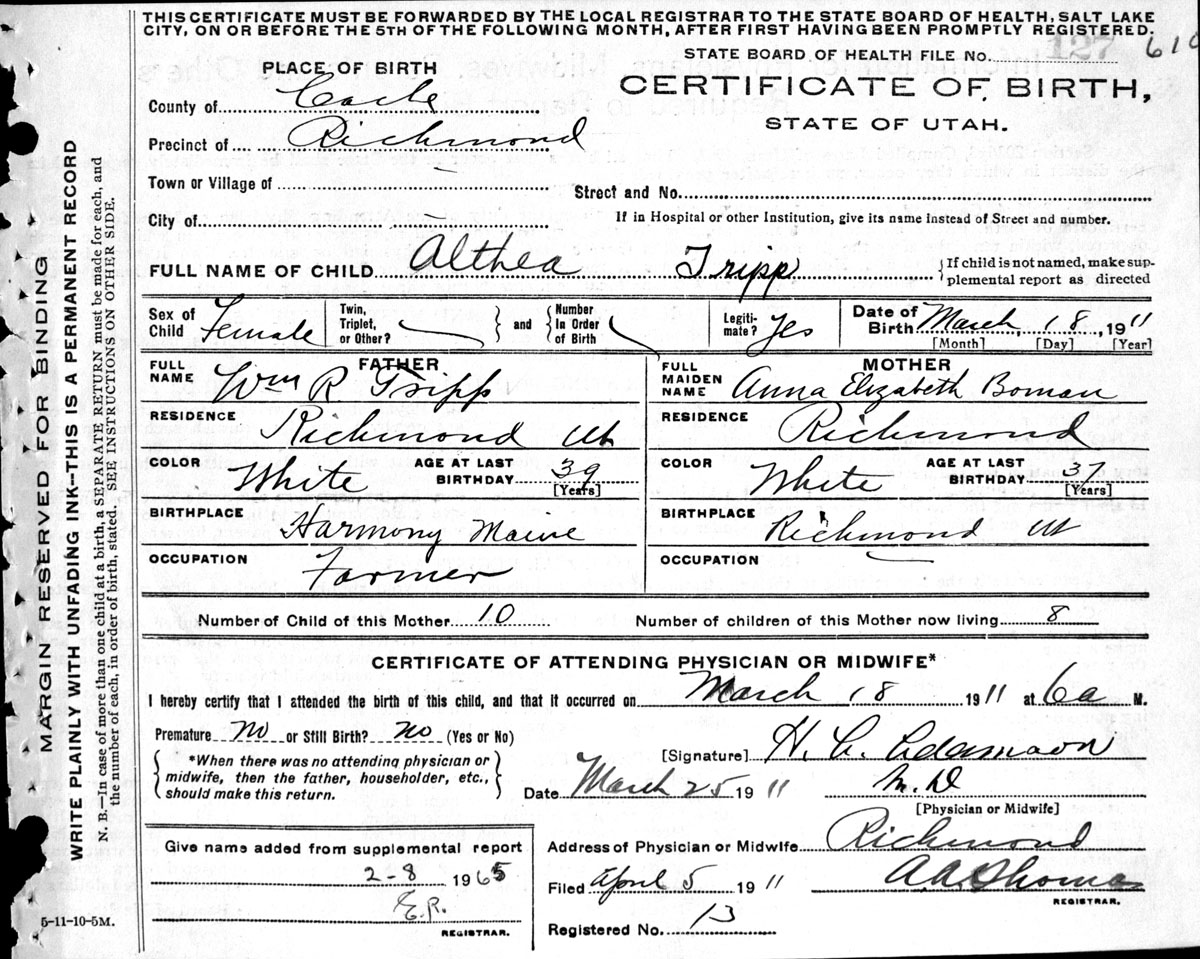 THIS CERTIFICATE MUST BE FORWARDED BY THE LOCAL REGISTRAR TO THE STATE BOARD OF HEALTH, SALT LAKE
CITY, ON OR BEFORE THE 5TH OF THE FOLLOWING MONTH, AFTER FIRST HAVING BEEN PROMPTLY REGISTERED.
STATE BOARD OF HEALTH FILE No. 127 610
PLACE OF BIRTH
CERTIFICATE OF BIRTH,
STATE OF UTAH.
County of Cache
Precinct of Richmond
Town or Village of
Street and No.
City of
If in Hospital or other Institution, give its name instead of Street and number.
FULL NAME OF CHILD Althea Tripp
If child is not named, make sup-
plemental report as directed
Sex of Child Female
Twin, Triplet, or Other?
and
Number In Order of Birth
Legiti-mate? Yes
Date of Birth March 18, 1911
[Month] [Day] [Year]
FATHER
FULL NAME Wm R. Tripp
RESIDENCE Richmond Ut
COLOR White AGE AT LAST BIRTHDAY 39
[Years]
BIRTHPLACE Harmony Maine
OCCUPATION Farmer
MOTHER
FULL MAIDEN NAME Anna Elizabeth Boman
RESIDENCE Richmond
COLOR White AGE AT LAST BIRTHDAY 37
[Years]
BIRTHPLACE Richmond Ut
OCCUPATION
Number of Child of this Mother 10 Number of children of this Mother now living 8
CERTIFICATE OF ATTENDING PHYSICIAN OR MIDWIFE*
I hereby certify that I attended the birth of this child, and that it occurred on March 18 1911 at 6a M.
Premature No or Still Birth? No (Yes or No)
*When there was no attending physician or
midwife, then the father, householder, etc.,
should make this return.
[Signature] H. C. Adamson
M.D
[Physician or Midwife]
Date March 25 1911
Give name added from supplemental report
2-8 1965
E.R.
REGISTRAR.
Address of Physician or Midwife Richmond
Filed April 5 1911 A.A. Thomas
REGISTRAR.
Registered No. 13
5-11-10-5M.
MARGIN RESERVED FOR BINDING
WRITE PLAINLY WITH UNFADING INK—THIS IS A PERMANENT RECORD
N. B.—In case of more than one child at a birth, a SEPARATE RETURN must be made for each, and
the number of each, in order of birth, stated. SEE INSTRUCTIONS ON OTHER SIDE.